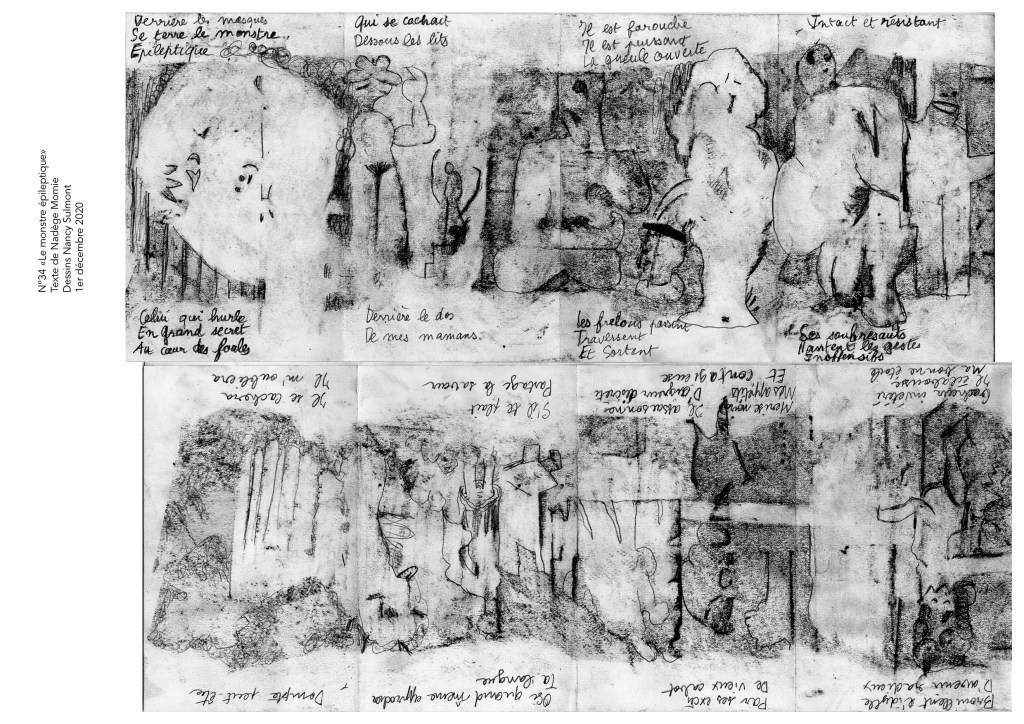 N°34 «Le monstre épileptique»
Texte de Nadège Mornie
Dessins Nancy Sulmont
1er décembre 2020
Derrière les masques
Se terre le monstre..
Epileptique
Celui qui hurle
En grand secret
Au cœur des foules
Qui se cachait
Dessous les lits
Derrière le dos
De mes mamans.
Il est farouche
Il est puissant
La gueule ouverte
Les frelons passent
Traversent
Et Sortent
Intact et résistant
Ses soubresauts
Hantent les gestes
Inoffensifs
Brouillent l'idylle
D'avenir radieux
Il éclabousse
Ma bonne étoile
Par ses excès
De vieux cabot
Il assaisonne
D'aigreur discrète
Mes appétits
Et contagieuse
Ose quand même
Ta langue
S'il te plaît
Partage la saveur
Dompté peut-être
Il se cachera
Il m'oubliera